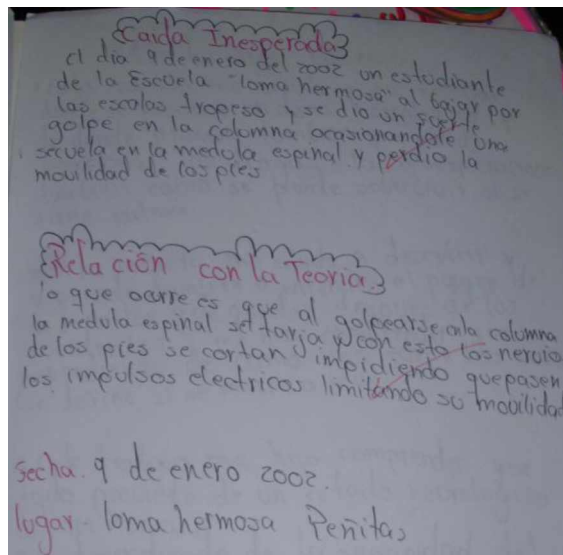 Caida Inesperada
el dia 9 de enero del 2002 un estudiante
de la Escuela "loma hermosa" al bajar por
las escalas tropeso y se dio un fuerte
golpe en la columna ocasionandole una
secuela en la medola espinal y perdio la
movilidad de los pies
Relación con la Teoria
lo que ocurre es que al golpearse en la columna
la medula espinal se tarja y con esto los nervio
de los pies se cortan impidiendo que pasen
los impulsos electricos limitando su movilidad
fecha. 9 de enero 2002.
lugar loma hermosa Peñitas